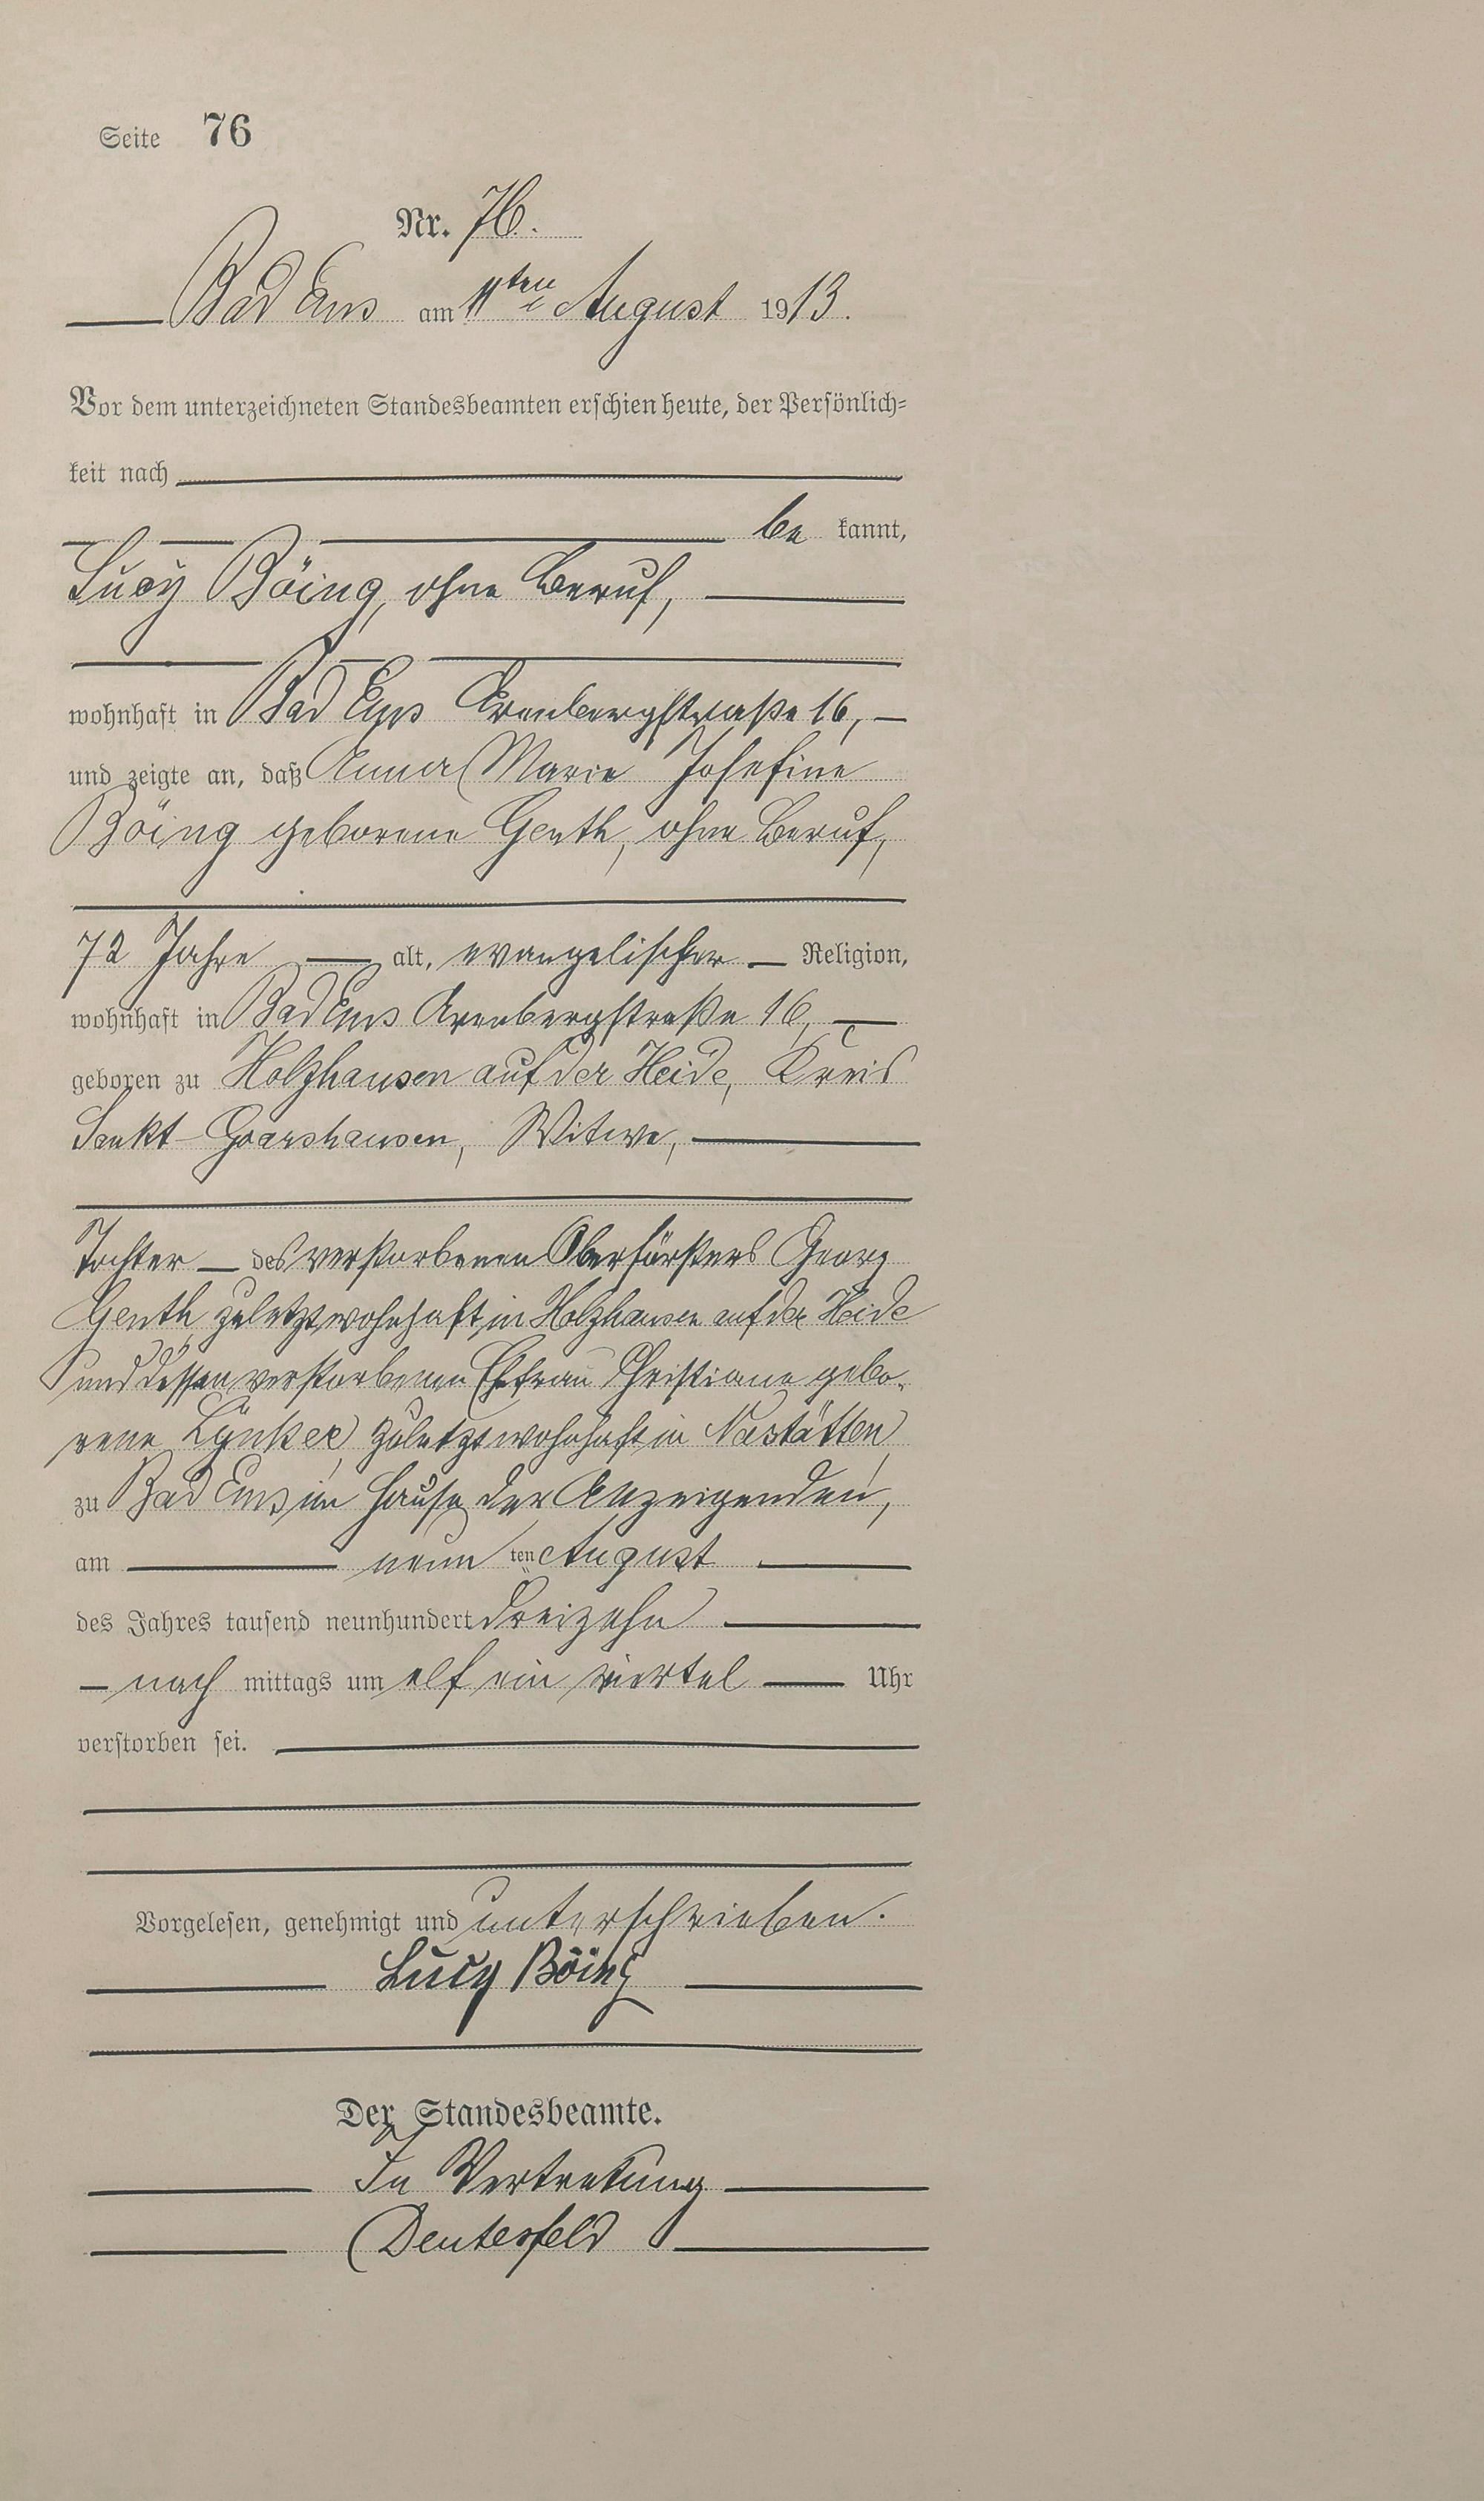 Seite 76
Nr. 76.
Bad Ems am 11ten August 1913.
Vor dem unterzeichneten Standesbeamten erschien heute, der Persönlich-
keit nach
be kannt,
Lucy Böing, ohne Beruf,
wohnhaft in Bad Ems Arenbergstraße 16,
und zeigte an, daß Anna Marie Josefine
Böing geborene Genth, ohne Beruf,
72 Jahre alt, evangelischer Religion,
wohnhaft in Bad Ems Arenbergstraße 16,
geboren zu Holzhausen auf der Heide, Kreis
Sankt-Goarshausen, Witwe,
Tochter des verstorbenen Oberförsters Georg
Genth, zuletzt wohnhaft in Holzhausen auf der Heide
und dessen verstorbenen Ehefrau Christiane gebo-
rene zuletzt wohnhaft in Nastätten
zu Bad Ems im Hause der Anzeigenden,
am neun ten August
des Jahres tausend neunhundert dreizehn
nach mittags um elf ein viertel Uhr
verstorben sei.
Vorgelesen, genehmigt und unterschrieben.
Lucy Böing
Der Standesbeamte.
In Vertretung
Deutesfeld